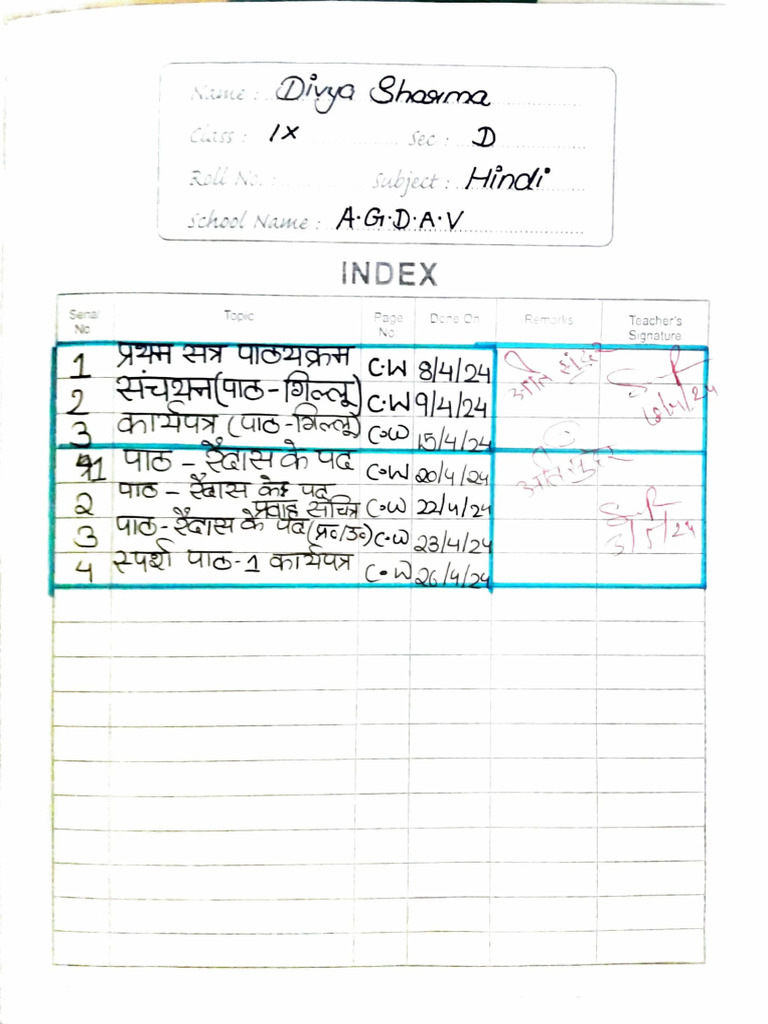 Name : Divya Sharma
Class : IX Sec : D
Roll No. : Subject : Hindi
School Name : A.G.D.A.V
INDEX
Serial No Topic Page No Done On Remarks Teacher's Signature
1 प्रथम सत्र पाठयक्रम C.W 8/4/24 अति सुंदर
2 संचयन (पाठ-गिल्लू) C.W 9/4/24
3 कार्यपत्र (पाठ-गिल्लू) C.W 15/4/24
1 पाठ - रैदास के पद C.W 20/4/24 अति सुंदर
2 पाठ - रैदास के पद प्रवाह सचित्र C.W 22/4/24
3 पाठ-रैदास के पद (प्र०/उ०) C.W 23/4/24
4 स्पर्श पाठ-1 कार्यपत्र C.W 26/4/24